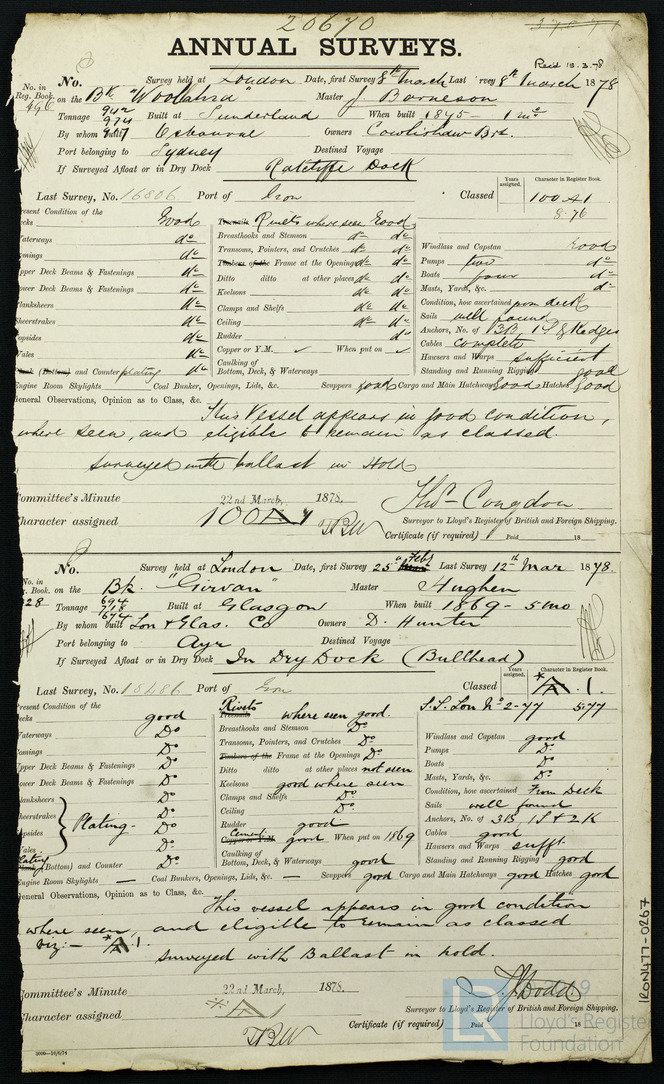 20670
ANNUAL SURVEYS.
Recd 13.3.78
No. Survey held at London Date, first Survey 8th March Last Survey 8th March 1878
No. in Reg. Book.
on the Bk "Woolahra" Master J. Barneson
Tonnage 942 974 Built at Sunderland When built 1875 - 1 mo
By whom built Osbourne Owners Cowlishaw Brs.
Port belonging to Sydney Destined Voyage
If Surveyed Afloat or in Dry Dock Ratcliffe Dock
Last Survey, No. 16806 Port of Iron Classed
Years assigned. Character in Register Book.
100 A1
8.76
Present Condition of the
Decks Good
Rivets where seen Good
Waterways do
Breasthooks and Stemson do do
Windlass and Capstan Good
Comings do
Transoms, Pointers, and Crutches do do
Pumps two do
Upper Deck Beams & Fastenings do
Timbers of the Frame at the Openings do do
Boats four do
Lower Deck Beams & Fastenings do
Ditto ditto at other places do do
Masts, Yards, &c. do
Planksheers do
Keelsons do do
Condition, how ascertained from deck
Sheerstrakes do
Clamps and Shelfs do do
Sails well found
Topsides do
Ceiling do do
Anchors, No. of 3B, 1S & Kedges
Wales do
Rudder do
Cables complete
Copper or Y.M. ✓ When put on ✓
Hawsers and Warps sufficient
Plank (Bottom) and Counter plating do
Caulking of Bottom, Deck, & Waterways
Standing and Running Rigging good
Engine Room Skylights Coal Bunker, Openings, Lids, &c. Scuppers good Cargo and Main Hatchways Good Hatches Good
General Observations, Opinion as to Class, &c.
This Vessel appears in good condition,
where seen, and eligible to remain as classed.
Surveyed with ballast in Hold
Committee's Minute 22nd March, 1878.
Thos Congdon
Character assigned 100 A 1
Surveyor to Lloyd's Register of British and Foreign Shipping.
Certificate (if required) Paid 18
No. Survey held at London Date, first Survey 25th Feby Last Survey 12th Mar 1878.
No. in Reg. Book.
28
on the Bk. "Girvan" Master Hughen
Tonnage 694 718 674 Built at Glasgow When built 1869 - 5 mo
By whom built Lon & Glas. Co Owners D. Hunter
Port belonging to Ayr Destined Voyage
If Surveyed Afloat or in Dry Dock In Dry Dock (Bullhead)
Last Survey, No. 15486 Port of Iron Classed
Years assigned. Character in Register Book.
* A. 1.
S.S. Lon No 2-77 5.77
Present Condition of the
Decks good
Rivets where seen good.
Waterways Do
Breasthooks and Stemson Do
Windlass and Capstan good
Comings Do
Transoms, Pointers, and Crutches Do
Pumps Do
Upper Deck Beams & Fastenings Do
Timbers of the Frame at the Openings Do
Boats Do
Lower Deck Beams & Fastenings Do
Ditto ditto at other places not seen
Masts, Yards, &c. Do
Planksheers Do
Keelsons good where seen
Condition, how ascertained From Deck
Sheerstrakes Plating. Do
Clamps and Shelfs Do
Sails well found
Topsides Do
Ceiling Do
Anchors, No. of 3B, 1S & 2K
Wales Do
Rudder good
Cables good
Cement Copper or Y.M. good When put on 1869
Hawsers and Warps sufft.
Plating Plank (Bottom) and Counter Do
Caulking of Bottom, Deck, & Waterways good
Standing and Running Rigging good
Engine Room Skylights — Coal Bunkers, Openings, Lids, &c. — Scuppers good Cargo and Main Hatchways good Hatches good
General Observations, Opinion as to Class, &c.
This vessel appears in good condition
where seen, and eligible to remain as classed
viz:- * A.1.
Surveyed with Ballast in hold.
Committee's Minute 22nd March, 1878.
Character assigned * A 1
Surveyor to Lloyd's Register of British and Foreign Shipping.
Certificate (if required) Paid 18
2000—10/6/74
IRON477-0267
LR
2019
Lloyd's Register
Foundation